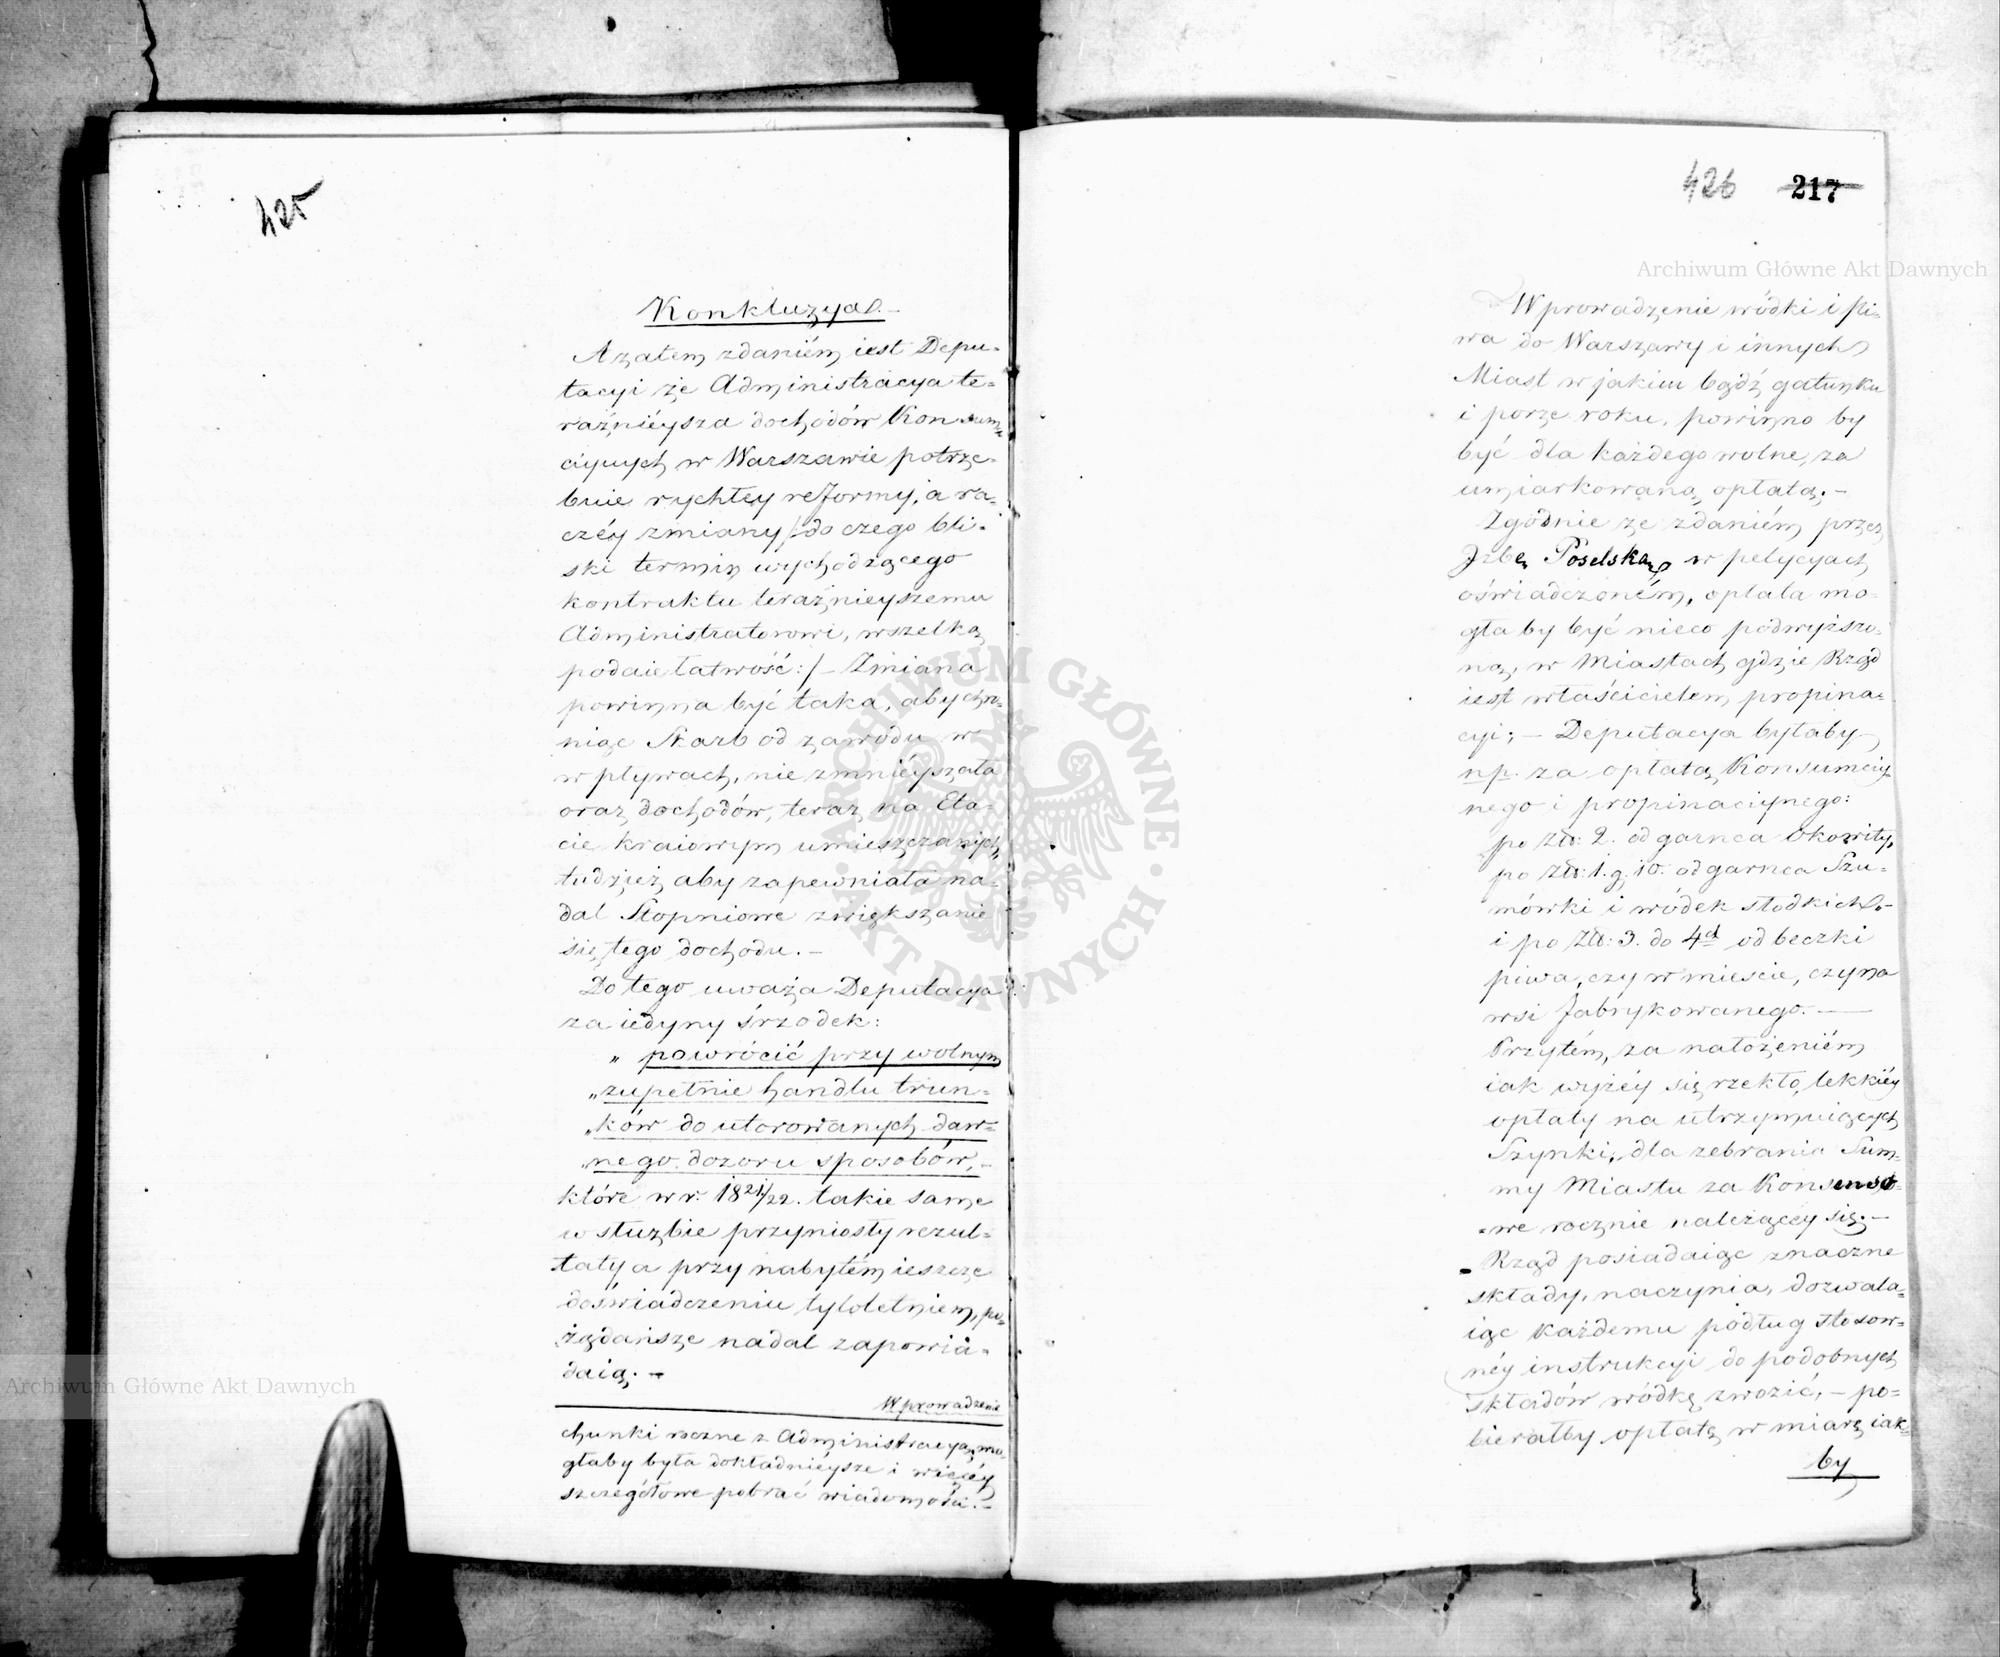 425
Konkluzya.-
A zatem zdaniém iest Depu-
tacyi że Administracya te-
raźnieysza dochodów Konsum-
cyinych w Warszawie potrze-
buie rychłey reformy, a ra-
czéy zmiany /:do czego bli-
ski termin wychodzącego
kontraktu teraźnieyszemu
Administratorowi, wszelką
podaie łatwość:/ - Zmiana
powinna być taka, aby chro-
niąc Skarb od zawodu w
wpływach, nie zmniéyszała
oraz dochodów, teraz na Eta-
cie kraiowym umieszczanych,
tudzież aby zapewniała na-
dal Stopniowe zwiększanie
się tego dochodu. -
Do tego uważa Deputacya
za iedyny śrzodek:
„ powrócić przy wolnym
„zupełnie handlu trun-
„ków do utorowanych daw-
„nego dozoru sposobów, -
które w r. 1821/22. takie same
w służbie przyniosły rezul-
taty a przy nabytém ieszcze
doświadczeniu tyloletniem, po-
żądańsze nadal zapowia-
daią. -
Wprowadzenie
chunki roczne z Administracyą, mo-
głaby była dokładnieysze i więcéy
szczegółowe pobrać wiadomości. -
426 217
Wprowadzenie wódki i Pi-
wa do Warszawy i innych
Miast w jakim bądź gatunku
i porze roku, powinno by
być dla każdego wolne, za
umiarkowaną opłatą. -
Zgodnie ze zdaniém przez
Jzbę Poselską w petycyach
oświadczoném, opłata mo-
gła by być nieco podwyższo-
ną, w Miastach gdzie Rząd
iest właścicielem propina-
cyi; - Deputacya byłaby
np. za opłatą Konsumcyi-
nego i propinacyinego:
po Złt: 2. od garnca Okowity,
po Złt: 1. g. 10. od garnca Szu-
mówki i wódek słodkich, -
i po Złt: 3. do 4d od beczki
piwa, czy w mieście, czy na
wsi fabrykowanego. -
Przytém, za nałożeniém
iak wyżéy się rzekło, lekkiéy
opłaty na utrzymuiących
Szynki, dla zebrania Sum-
my Miastu za Konsenso-
-we rocznie należącéy się. -
Rząd posiadaiąc znaczne
składy, naczynia, dozwala-
iąc każdemu podług stosow-
néy instrukcyi do podobnych
składów wódkę zwozić, - po-
bierałby opłatę w miarę iak-
by
Archiwum Główne Akt Dawnych
Archiwum Główne Akt Dawnych
ARCHIWUM GŁÓWNE AKT DAWNYCH